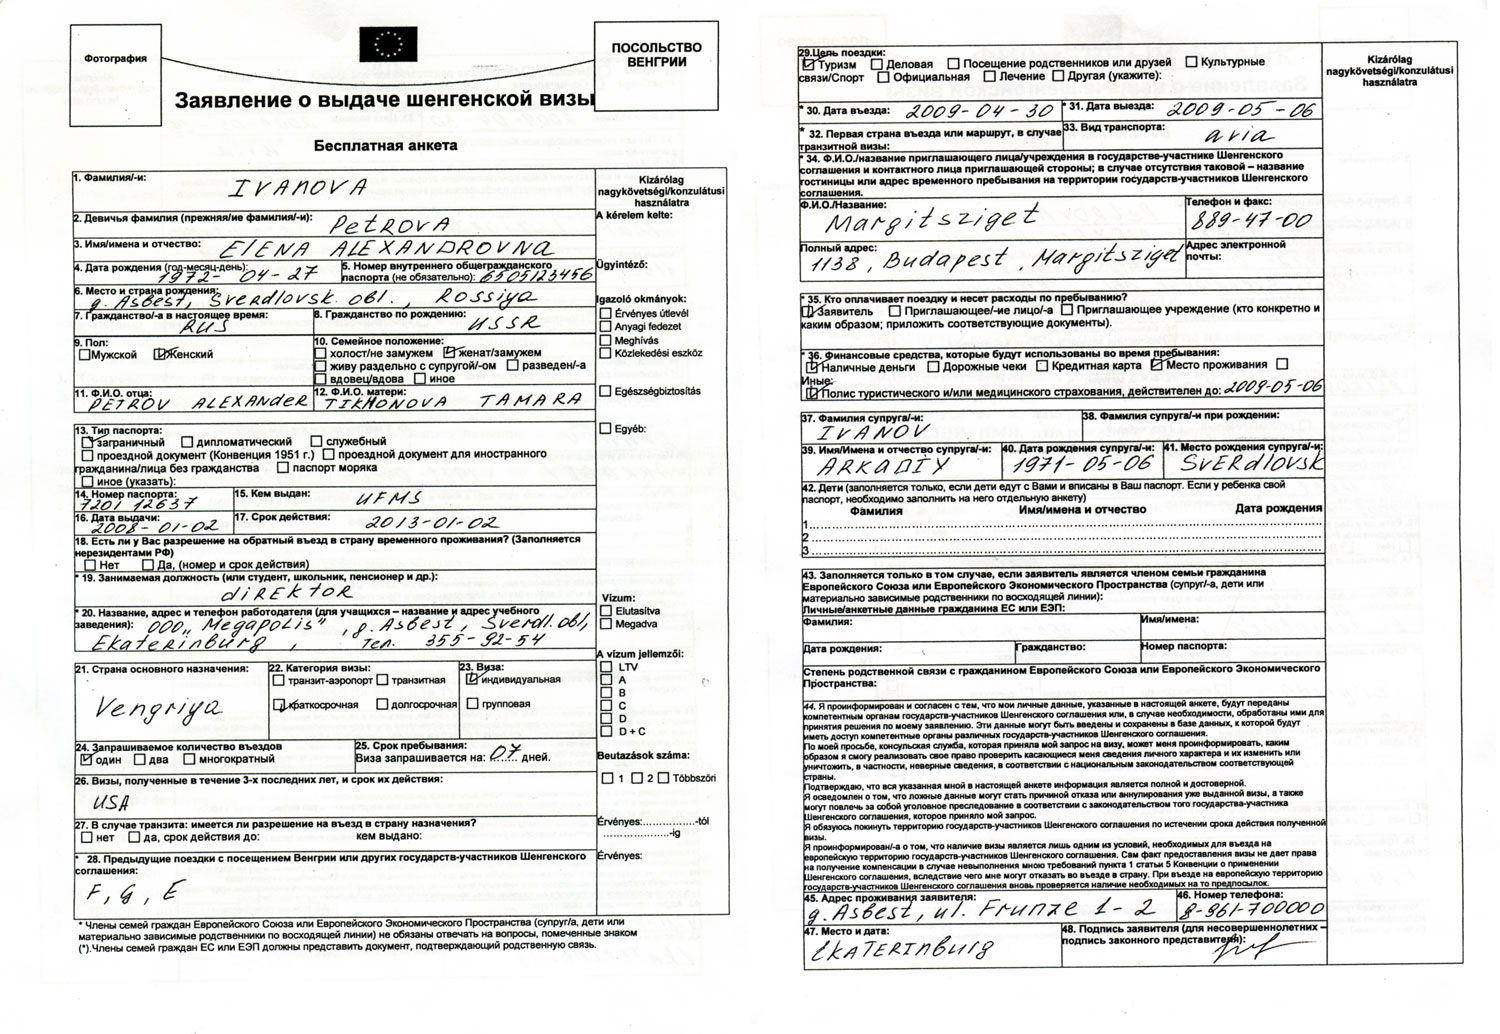 Фотография
ПОСОЛЬСТВО
ВЕНГРИИ
Заявление о выдаче шенгенской визы
Бесплатная анкета
1. Фамилия/-и: IVANOVA
2. Девичья фамилия (прежняя/ие фамилия/-и): PetROVA
3. Имя/имена и отчество: ELENA ALEXANDROVNA
4. Дата рождения (год-месяц-день): 1972-04-27
5. Номер внутреннего общегражданского
паспорта (не обязательно): 6505123456
6. Место и страна рождения:
g. Asbest, Sverdlovsk. obl., Rossiya
7. Гражданство/-а в настоящее время: RUS
8. Гражданство по рождению: USSR
9. Пол:
Мужской Женский
10. Семейное положение:
холост/не замужем женат/замужем
живу раздельно с супругой/-ом разведен/-а
вдовец/вдова иное
11. Ф.И.О. отца: PETROV ALEXANDER
12. Ф.И.О. матери: TIKHONOVA TAMARA
13. Тип паспорта:
заграничный дипломатический служебный
проездной документ (Конвенция 1951 г.) проездной документ для иностранного
гражданина/лица без гражданства паспорт моряка
иное (указать):
14. Номер паспорта: 7201 12637
15. Кем выдан: UFMS
16. Дата выдачи: 2008-01-02
17. Срок действия: 2013-01-02
18. Есть ли у Вас разрешение на обратный въезд в страну временного проживания? (Заполняется
нерезидентами РФ)
Нет Да, (номер и срок действия)
* 19. Занимаемая должность (или студент, школьник, пенсионер и др.):
diREKtOR
* 20. Название, адрес и телефон работодателя (для учащихся – название и адрес учебного
заведения): OOO „Megapolis", g. Asbest, Sverdl. obl,
Ekaterinburg, Тел. 355-92-54
21. Страна основного назначения:
Vengriya
22. Категория визы:
транзит-аэропорт транзитная
краткосрочная долгосрочная
23. Виза:
индивидуальная
групповая
24. Запрашиваемое количество въездов
один два многократный
25. Срок пребывания:
Виза запрашивается на: 07 дней.
26. Визы, полученные в течение 3-х последних лет, и срок их действия:
USA
27. В случае транзита: имеется ли разрешение на въезд в страну назначения?
нет да, срок действия до: кем выдано:
* 28. Предыдущие поездки с посещением Венгрии или других государств-участников Шенгенского
соглашения:
F, g, E
* Члены семей граждан Европейского Союза или Европейского Экономического Пространства (супруг/а, дети или
материально зависимые родственники по восходящей линии) не обязаны отвечать на вопросы, помеченные знаком
(*).Члены семей граждан ЕС или ЕЭП должны представить документ, подтверждающий родственную связь.
Kizárólag
nagykövetségi/konzulátusi
használatra
A kérelem kelte:
Ügyintéző:
Igazoló okmányok:
Érvényes útlevél
Anyagi fedezet
Meghívás
Közlekedési eszköz
Egészségbiztosítás
Egyéb:
Vízum:
Elutasítva
Megadva
A vízum jellemzői:
LTV
A
B
C
D
D + C
Beutazások száma:
1 2 Többszöri
Érvényes:................-tól
....................-ig
Érvényes:
29.Цель поездки:
Туризм Деловая Посещение родственников или друзей Культурные
связи/Спорт Официальная Лечение Другая (укажите):
* 30. Дата въезда: 2009-04-30
* 31. Дата выезда: 2009-05-06
* 32. Первая страна въезда или маршрут, в случае
транзитной визы:
33. Вид транспорта: avia
* 34. Ф.И.О./название приглашающего лица/учреждения в государстве-участнике Шенгенского
соглашения и контактного лица приглашающей стороны; в случае отсутствия таковой – название
гостиницы или адрес временного пребывания на территории государств-участников Шенгенского
соглашения.
Ф.И.О./Название: Margitsziget
Телефон и факс:
889-47-00
Полный адрес:
1138, Budapest, Margitsziget
Адрес электронной
почты:
* 35. Кто оплачивает поездку и несет расходы по пребыванию?
Заявитель Приглашающее/-ие лицо/-а Приглашающее учреждение (кто конкретно и
каким образом; приложить соответствующие документы).
* 36. Финансовые средства, которые будут использованы во время пребывания:
Наличные деньги Дорожные чеки Кредитная карта Место проживания
Иные:
Полис туристического и/или медицинского страхования, действителен до: 2009-05-06
37. Фамилия супруга/-и: IVANOV
38. Фамилия супруга/-и при рождении:
39. Имя/Имена и отчество супруга/-и: ARKADIY
40. Дата рождения супруга/-и: 1971-05-06
41. Место рождения супруга/-и: SVERdLOVSK
42. Дети (заполняется только, если дети едут с Вами и вписаны в Ваш паспорт. Если у ребенка свой
паспорт, необходимо заполнить на него отдельную анкету)
Фамилия Имя/имена и отчество Дата рождения
1
2
3
43. Заполняется только в том случае, если заявитель является членом семьи гражданина
Европейского Союза или Европейского Экономического Пространства (супруг/-а, дети или
материально зависимые родственники по восходящей линии):
Личные/анкетные данные гражданина ЕС или ЕЭП:
Фамилия: Имя/имена:
Дата рождения: Гражданство: Номер паспорта:
Степень родственной связи с гражданином Европейского Союза или Европейского Экономического
Пространства:
44. Я проинформирован и согласен с тем, что мои личные данные, указанные в настоящей анкете, будут переданы
компетентным органам государств-участников Шенгенского соглашения или, в случае необходимости, обработаны ими для
принятия решения по моему заявлению. Эти данные могут быть введены и сохранены в базе данных, к которой будут
иметь доступ компетентные органы различных государств-участников Шенгенского соглашения.
По моей просьбе, консульская служба, которая приняла мой запрос на визу, может меня проинформировать, каким
образом я смогу реализовать свое право проверить касающиеся меня сведения личного характера и их изменить или
уничтожить, в частности, неверные сведения, в соответствии с национальным законодательством соответствующей
страны.
Подтверждаю, что вся указанная мной в настоящей анкете информация является полной и достоверной.
Я осведомлен о том, что ложные данные могут стать причиной отказа или аннулирования уже выданной визы, а также
могут повлечь за собой уголовное преследование в соответствии с законодательством того государства-участника
Шенгенского соглашения, которое приняло мой запрос.
Я обязуюсь покинуть территорию государств-участников Шенгенского соглашения по истечении срока действия полученной
визы.
Я проинформирован/-а о том, что наличие визы является лишь одним из условий, необходимых для въезда на
европейскую территорию государств-участников Шенгенского соглашения. Сам факт предоставления визы не дает права
на получение компенсации в случае невыполнения мною требований пункта 1 статьи 5 Конвенции о применении
Шенгенского соглашения, вследствие чего мне могут отказать во въезде в страну. При въезде на европейскую территорию
государств-участников Шенгенского соглашения вновь проверяется наличие необходимых на то предпосылок.
45. Адрес проживания заявителя:
g. Asbest, ul. Frunze 1-2
46. Номер телефона:
8-961-700000
47. Место и дата:
EKATERINburg
48. Подпись заявителя (для несовершеннолетних –
подпись законного представителя):
Kizárólag
nagykövetségi/konzulátusi
használatra